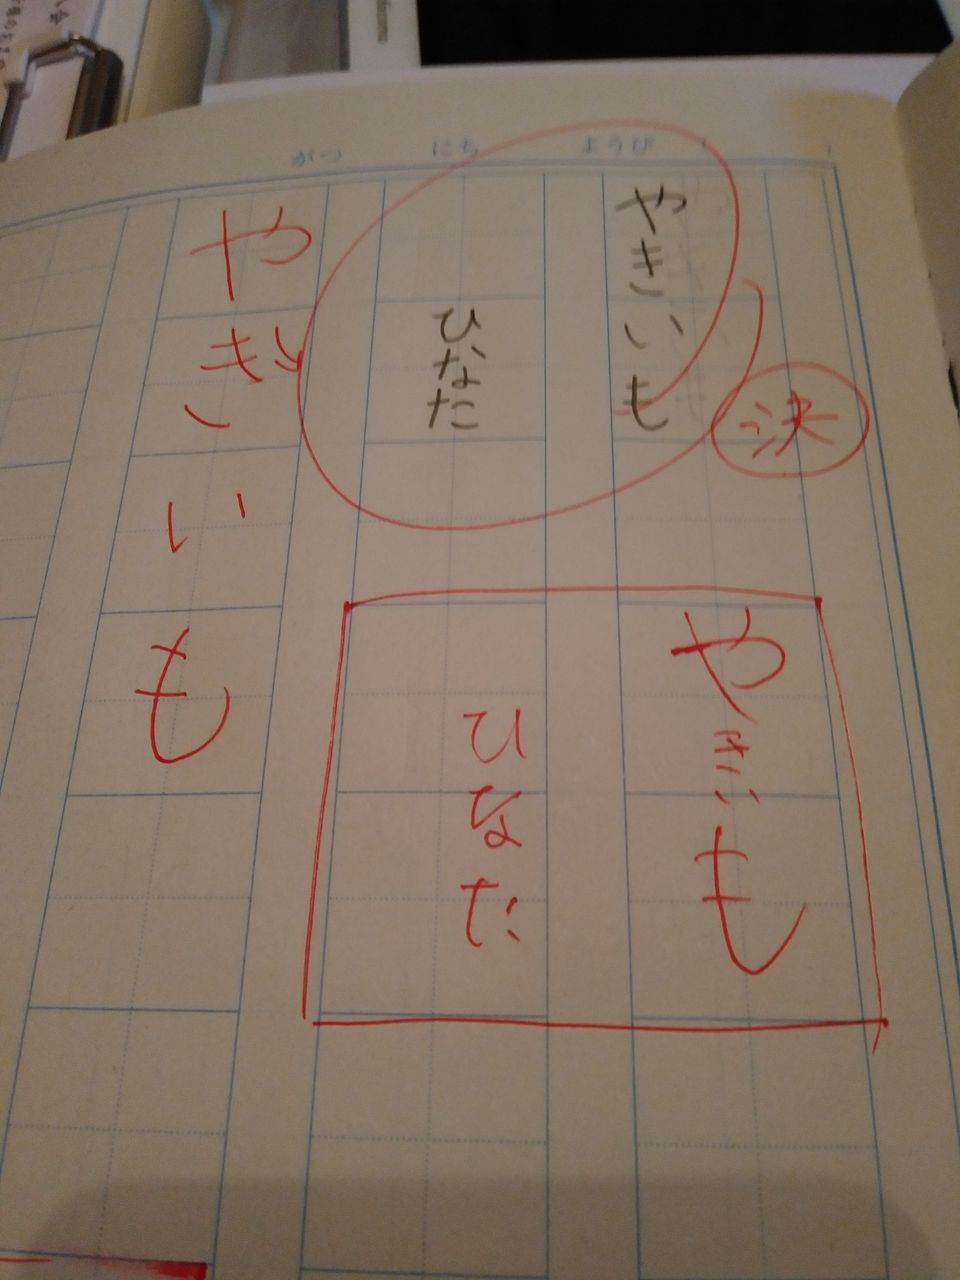 がつ にち ようび
やきいも
ひなた
決
やきいも
ひなた
やきいも